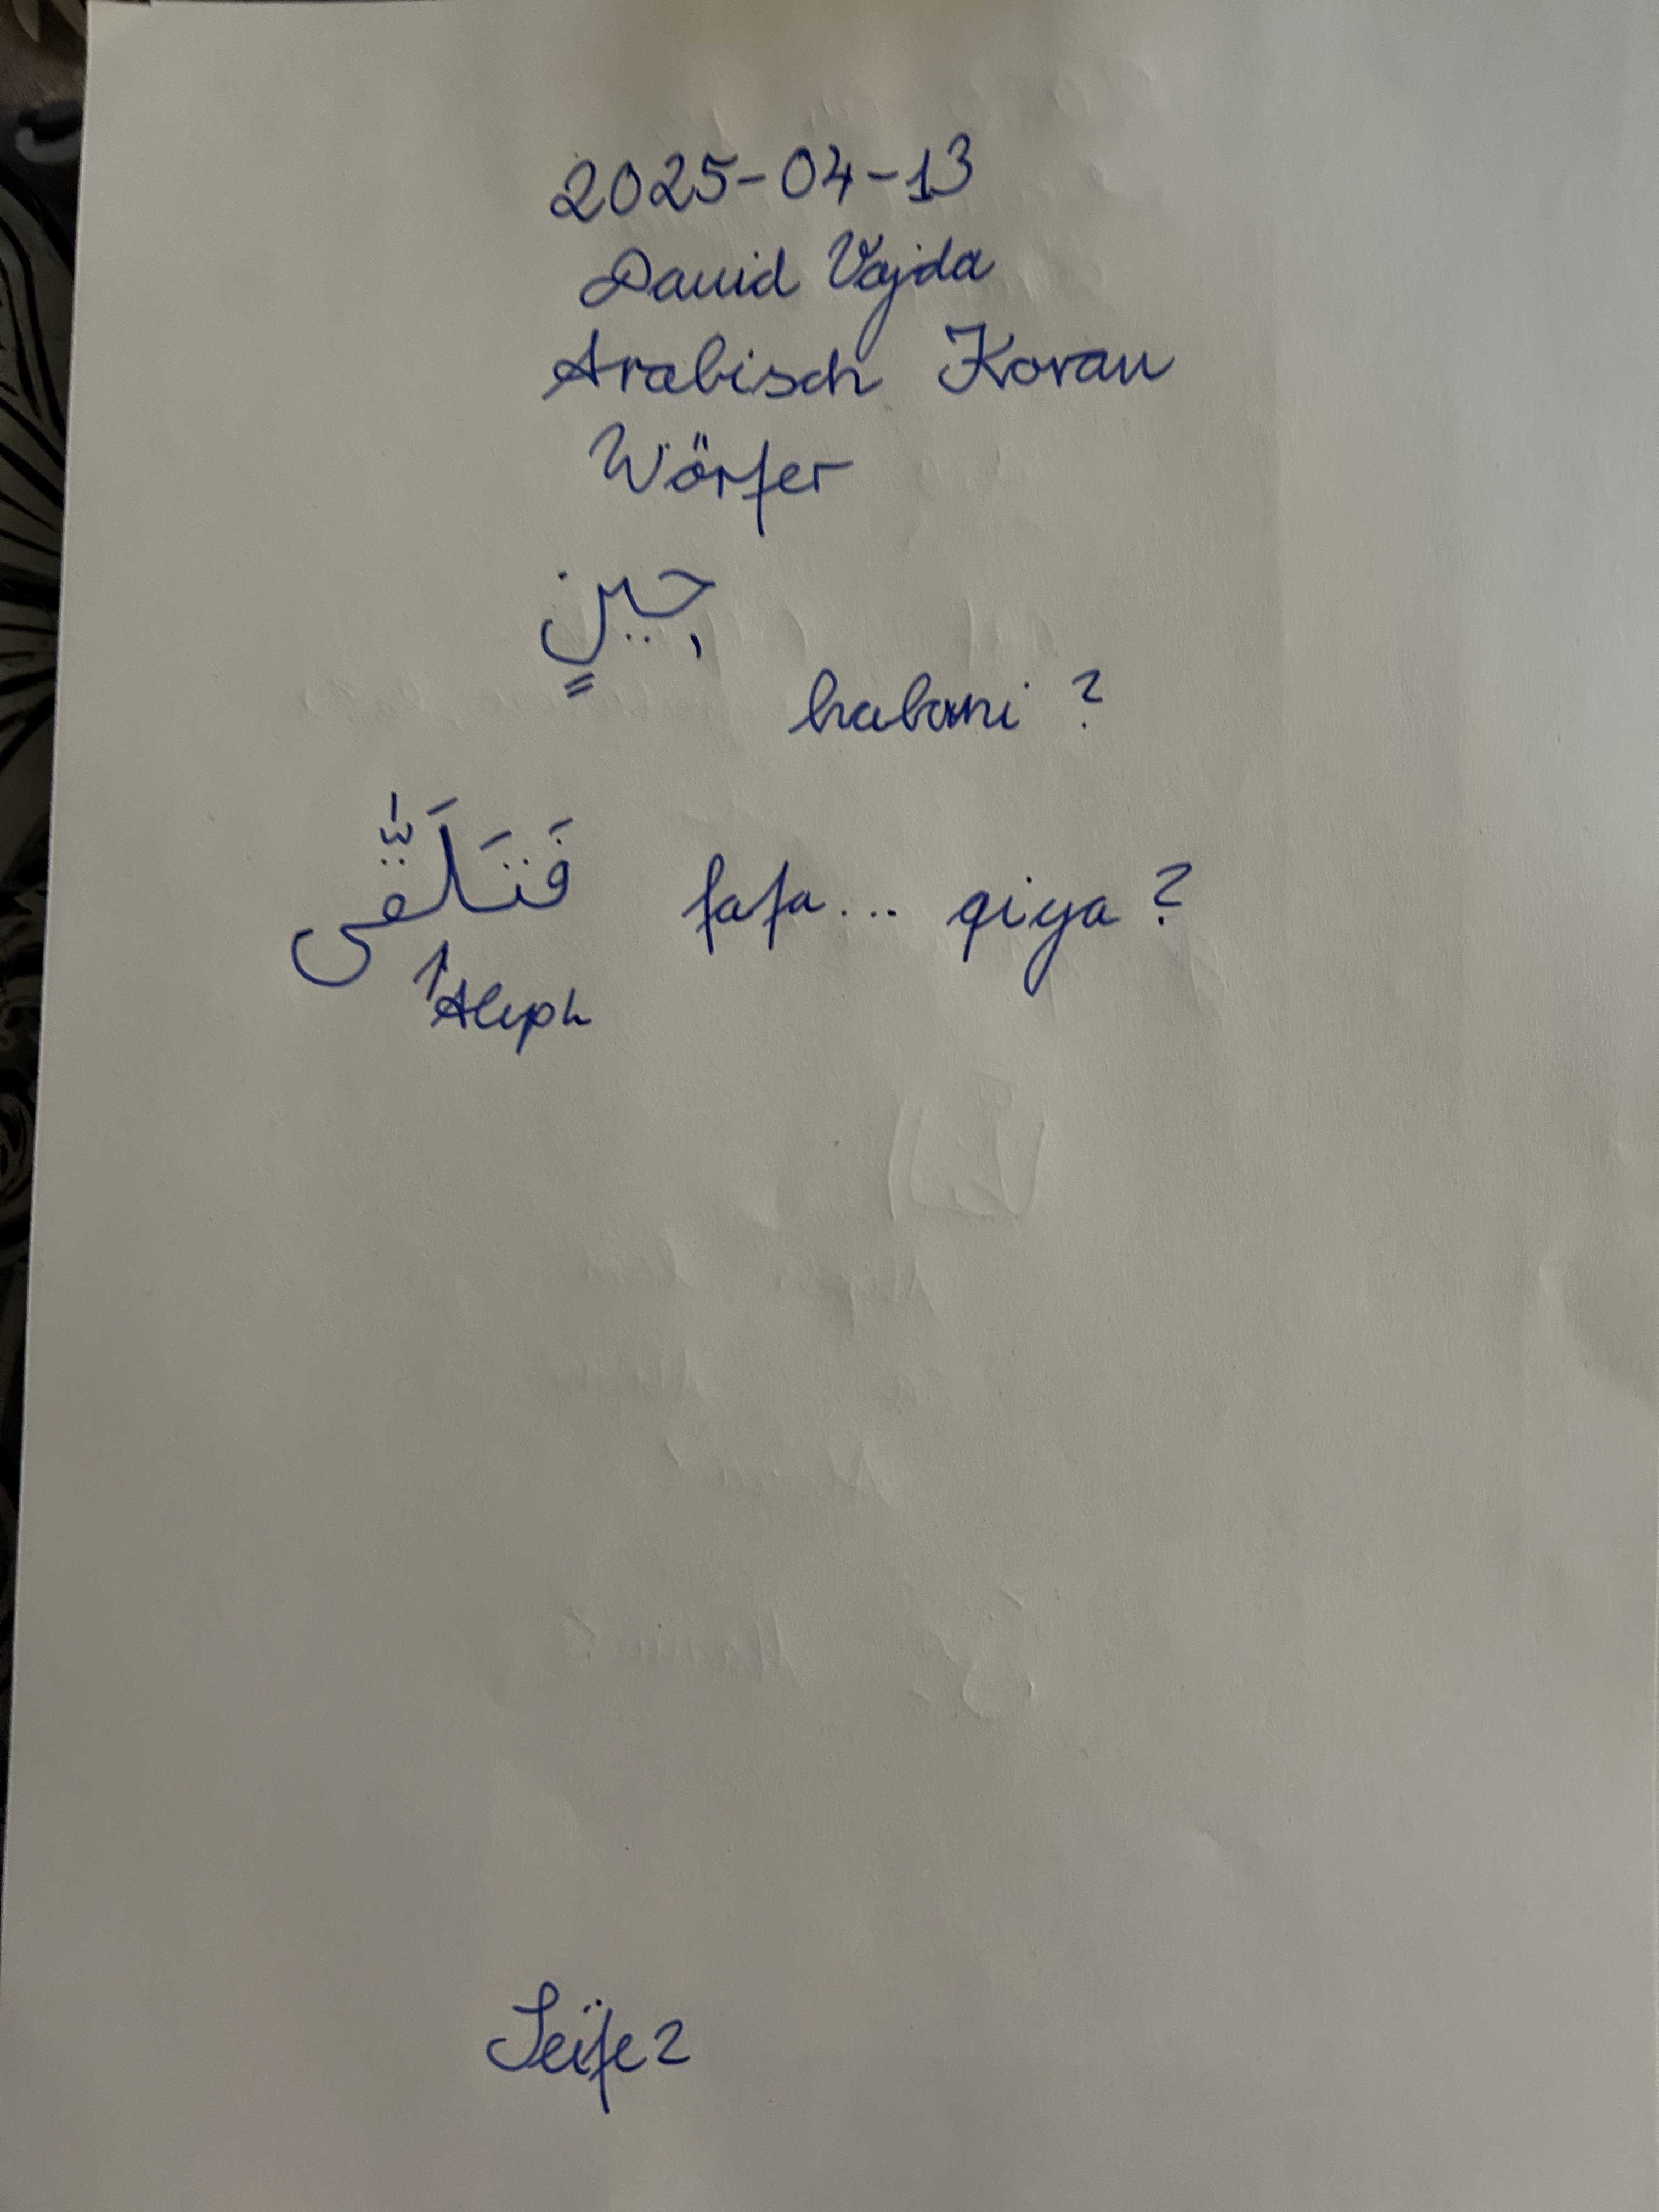 2025-04-13
David Vajda
Arabisch Koran
Wörter
حِينٍ
habani ?
فَتَلَقّٰى fata... qiya ?
Aleph
Seite 2